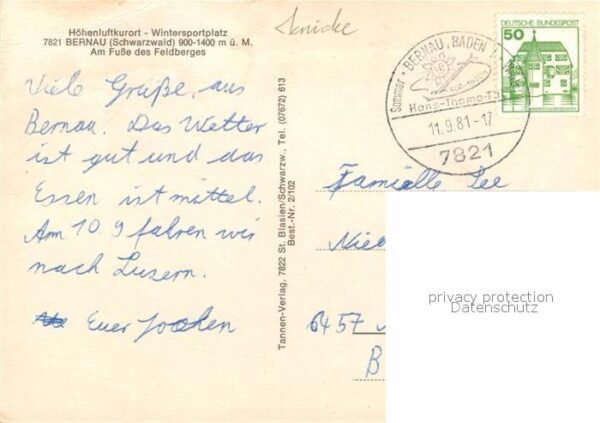 Höhenluftkurort - Wintersportplatz
7821 BERNAU (Schwarzwald) 900-1400 m ü. M.
Am Fuße des Feldberges
Viele Grüße aus
Bernau. Das Wetter
ist gut und das
Essen ist mittel.
Am 10.9 fahren wir
nach Luzern.
Euer Jochen
Tannen-Verlag, 7822 St. Blasien/Schwarzw., Tel. (07672) 613
Best.-Nr. 2/102
Knicke
BERNAU, BADEN
Sommer
Hans-Thoma-T
11.9.81-17
7821
DEUTSCHE BUNDESPOST
50
Familie Lee
Nie
6457
B
privacy protection
Datenschutz